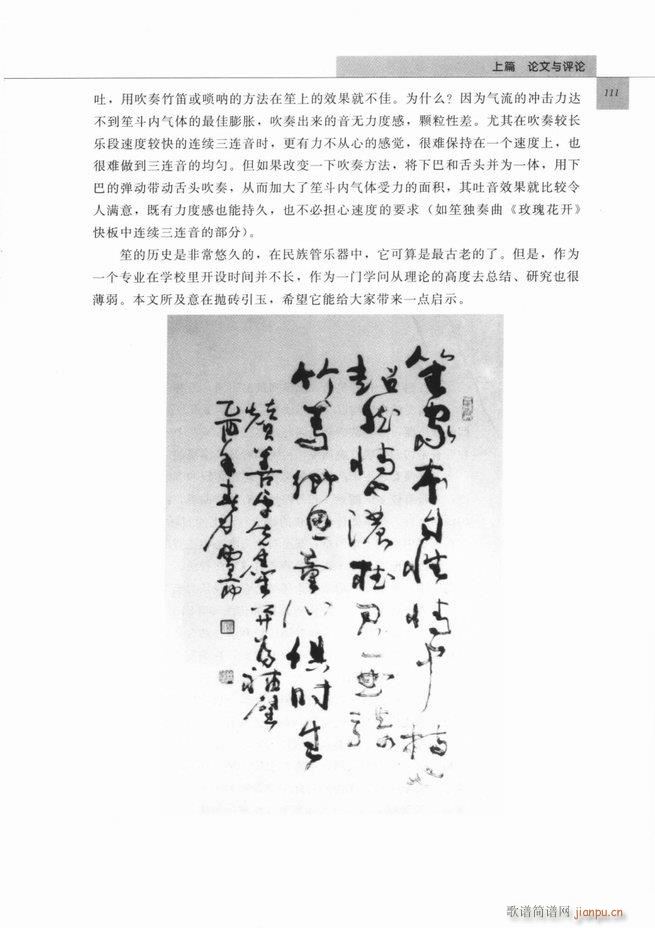 上篇 论文与评论
111
吐，用吹奏竹笛或唢呐的方法在笙上的效果就不佳。为什么？因为气流的冲击力达
不到笙斗内气体的最佳膨胀，吹奏出来的音无力度感，颗粒性差。尤其在吹奏较长
乐段速度较快的连续三连音时，更有力不从心的感觉，很难保持在一个速度上，也
很难做到三连音的均匀。但如果改变一下吹奏方法，将下巴和舌头并为一体，用下
巴的弹动带动舌头吹奏，从而加大了笙斗内气体受力的面积，其吐音效果就比较令
人满意，既有力度感也能持久，也不必担心速度的要求（如笙独奏曲《玫瑰花开》
快板中连续三连音的部分）。
笙的历史是非常悠久的，在民族管乐器中，它可算是最古老的了。但是，作为
一个专业在学校里开设时间并不长，作为一门学问从理论的高度去总结、研究也很
薄弱。本文所及意在抛砖引玉，希望它能给大家带来一点启示。
笙家本自性情中
超然情也浓
竹善乡思童心俱时生
善
先生笙
乙酉年春月
歌谱简谱网 jianpu.cn